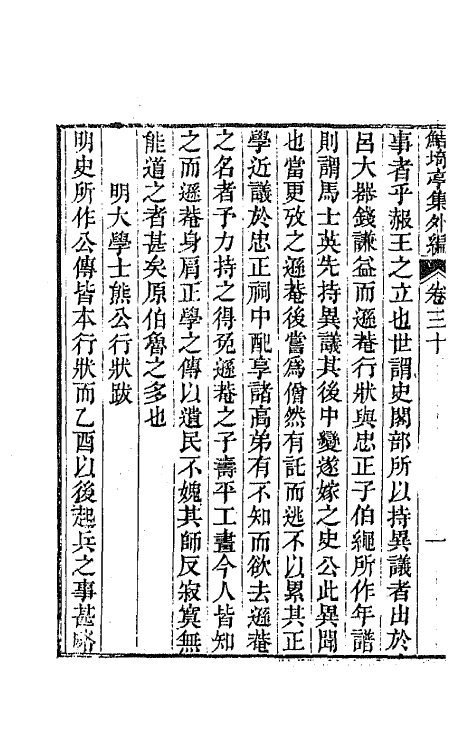 鮚埼亭集外編 卷三十 一
事者乎赧王之立也世謂史閣部所以持異議者出於
呂大器錢謙益而遜菴行狀與忠正子伯繩所作年譜
則謂馬士英先持異議其後中變遂嫁之史公此異聞
也當更攷之遜菴後嘗爲僧然有託而逃不以累其正
學近議於忠正祠中配享諸高弟有不知而欲去遜菴
之名者予力持之得免遜菴之子壽平工畫今人皆知
之而遜菴身肩正學之傳以遺民不媿其師反寂寞無
能道之者甚矣原伯魯之多也
明大學士熊公行狀跋
明史所作公傳皆本行狀而乙酉以後起兵之事甚畧